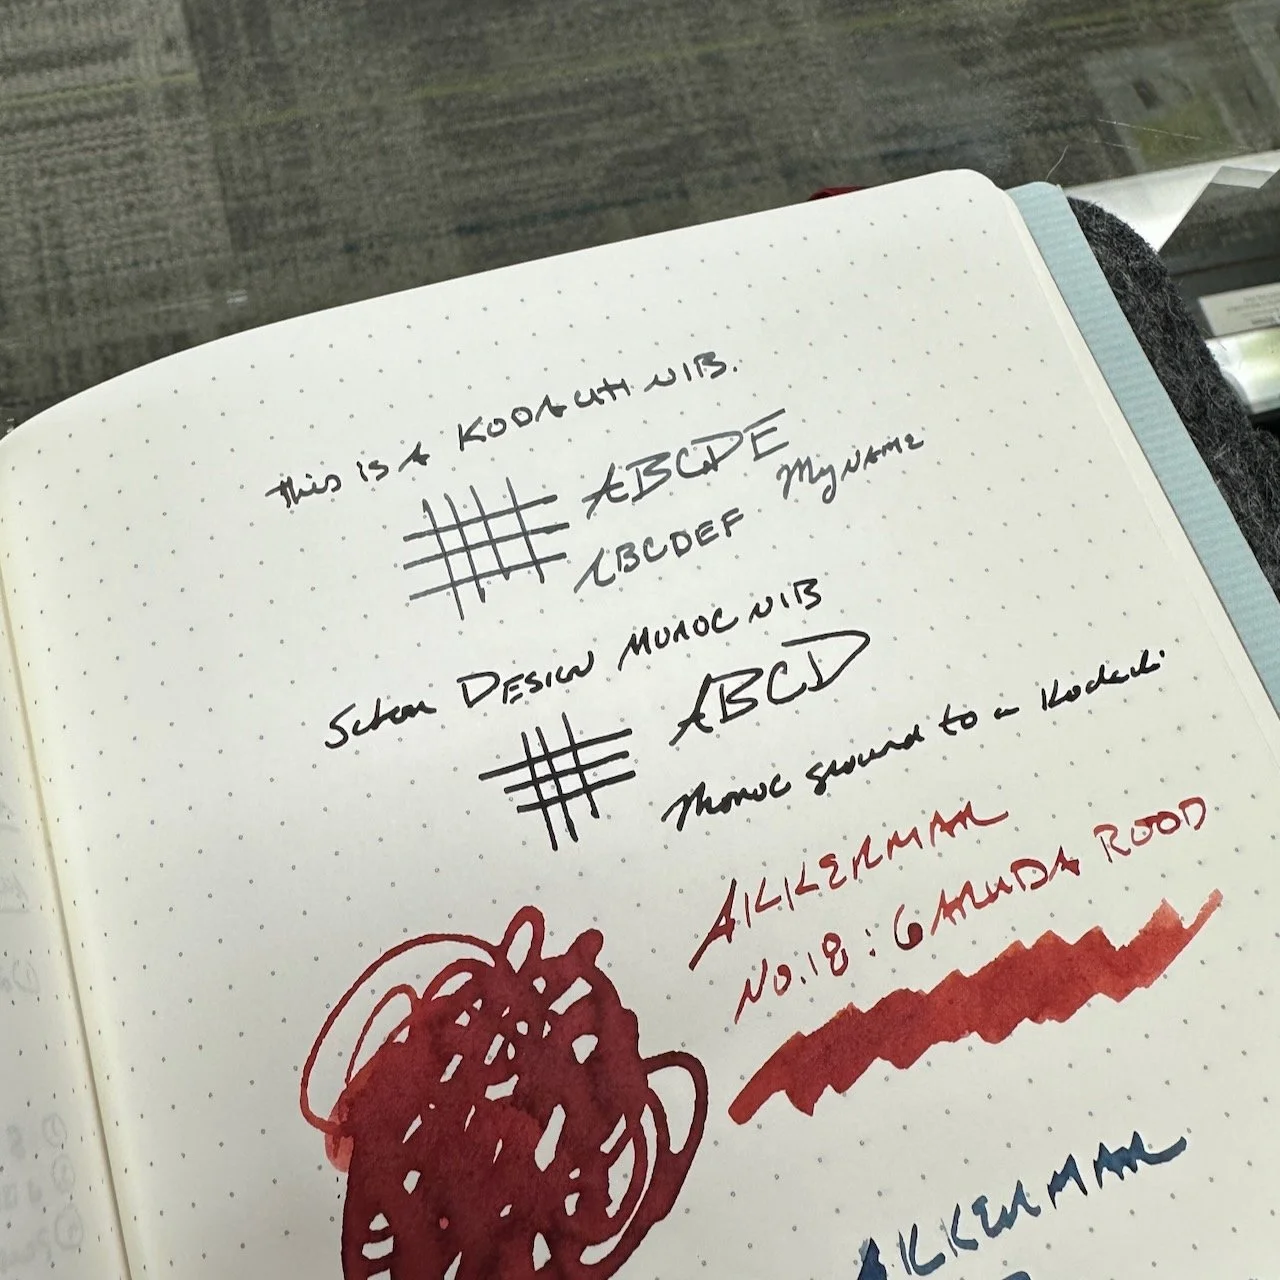 This is a KODACHI NIB.
ABCDE
My NAME
ABCDEF
Schon DESIGN MONOC NIB
ABCD
Monoc ground to a Kodachi
AKKERMAN
No.18: GARUDA ROOD
AKKERMAN